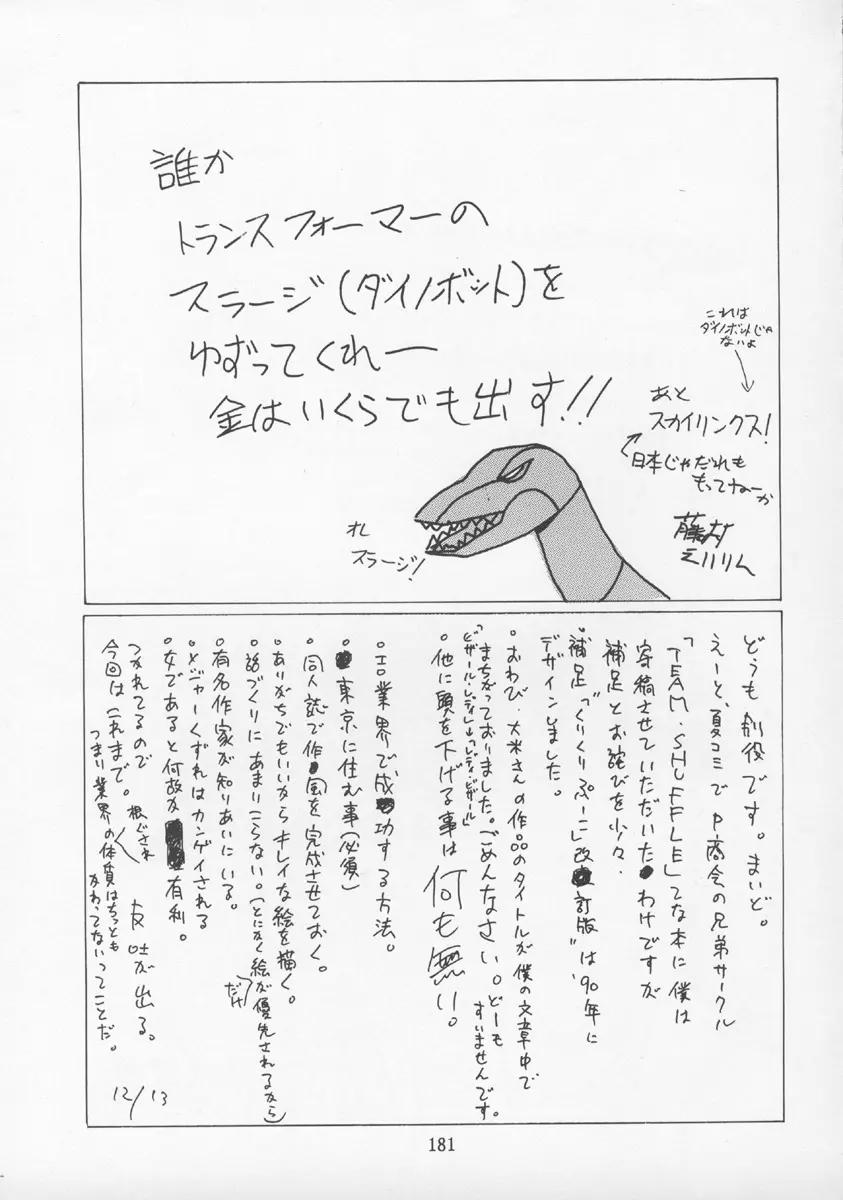 誰か
トランスフォーマーの
スラージ(ダイノボット)を
ゆずってくれー
金はいくらでも出す!!
これは
ダイノボットじゃ
ないよ
あと
スカイリンクス!
日本じゃだれも
もってねーか
オレ
スラージ!
どうも 削役です。まいど。
えーと、夏コミでP商会の兄弟サークル
「TEAM・SHUFFLE」てな本に僕は
寄稿させていただいたわけですが
補足とお詫びを少々.
補足 "くりくりぷーこ改訂版"は'90年に
デザインしました。
おわび・大米さんの作品のタイトルが僕の文章中で
まちがっておりました。ごめんなさい。どーも
すいませんです。
「ビザール・レディ」→「レディ・ビザール」
他に頭を下げる事は 何も無い。
エロ業界で、成功する方法。
東京に住む事(必須)
同人誌で作風を完成させておく。
ありがちでもいいからキレイな絵を描く。
話づくりにあまりこらない。(とにかく絵だけが優先されるから)
有名作家が知りあいにいる。
メジャーくずれはカンゲイされる
女であると何故か有利。
つかれてるので
今回はこれまで。
根ぐされ
反吐が出る。
つまり業界の体質はちっとも
かわってないってことだ。
12/13
181